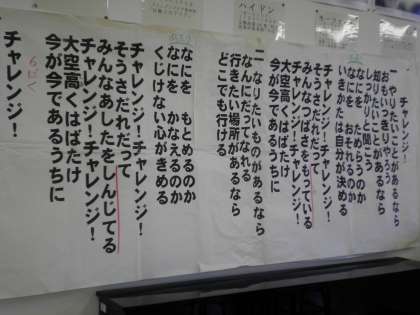 ハイドン
一 やりたいことがあるなら
おもいっきりやろう
知りたいことがあるなら
しっかりと聞こう
なにを ためらうのか
なにを おそれるのか
いきかたは自分が決める
チャレンジ！チャレンジ！
そうさだれだって
みんなつばさをもっている
チャレンジ！チャレンジ！
大空高くはばたけ
今が今であるうちに
二 なりたいものがあるなら
なんにだってなれる
行きたい場所があるなら
どこでも行ける
なにを もとめるのか
なにを かなえるのか
くじけない心がきめる
チャレンジ！チャレンジ！
そうさだれだって
みんなあしたをしんじてる
チャレンジ！チャレンジ！
大空高くはばたけ
今が今であるうちに
6ぱく
チャレンジ！